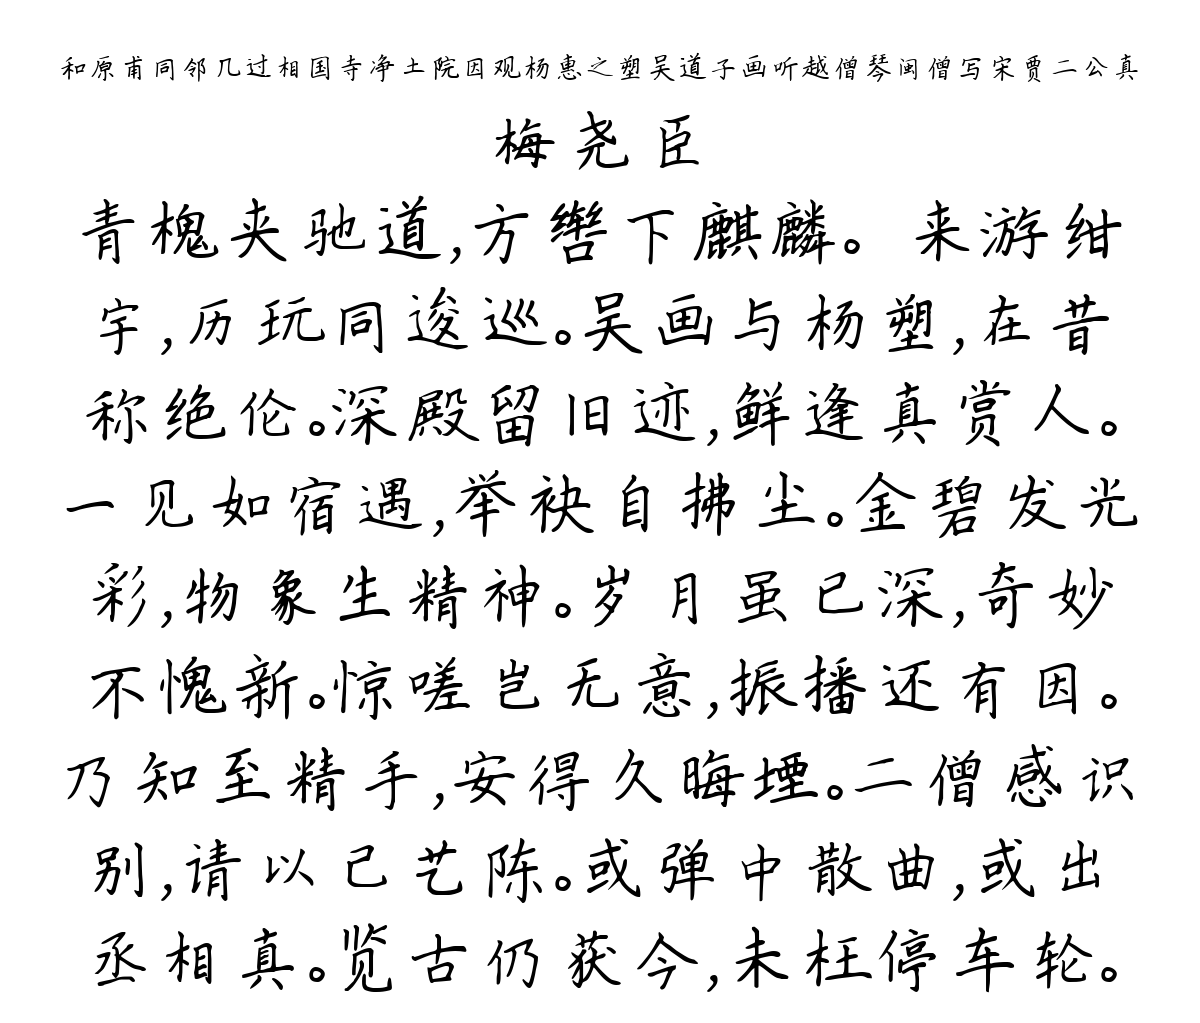 和原甫同邻几过相国寺净土院因观杨惠之塑吴道子画听越僧琴闽僧写宋贾二公真
梅尧臣
青槐夹驰道,方辔下麒麟。来游绀
宇,历玩同逡巡。吴画与杨塑,在昔
称绝伦。深殿留旧迹,鲜逢真赏人。
一见如宿遇,举袂自拂尘。金碧发光
彩,物象生精神。岁月虽已深,奇妙
不愧新。惊嗟岂无意,振播还有因。
乃知至精手,安得久晦堙。二僧感识
别,请以己艺陈。或弹中散曲,或出
丞相真。览古仍获今,未枉停车轮。